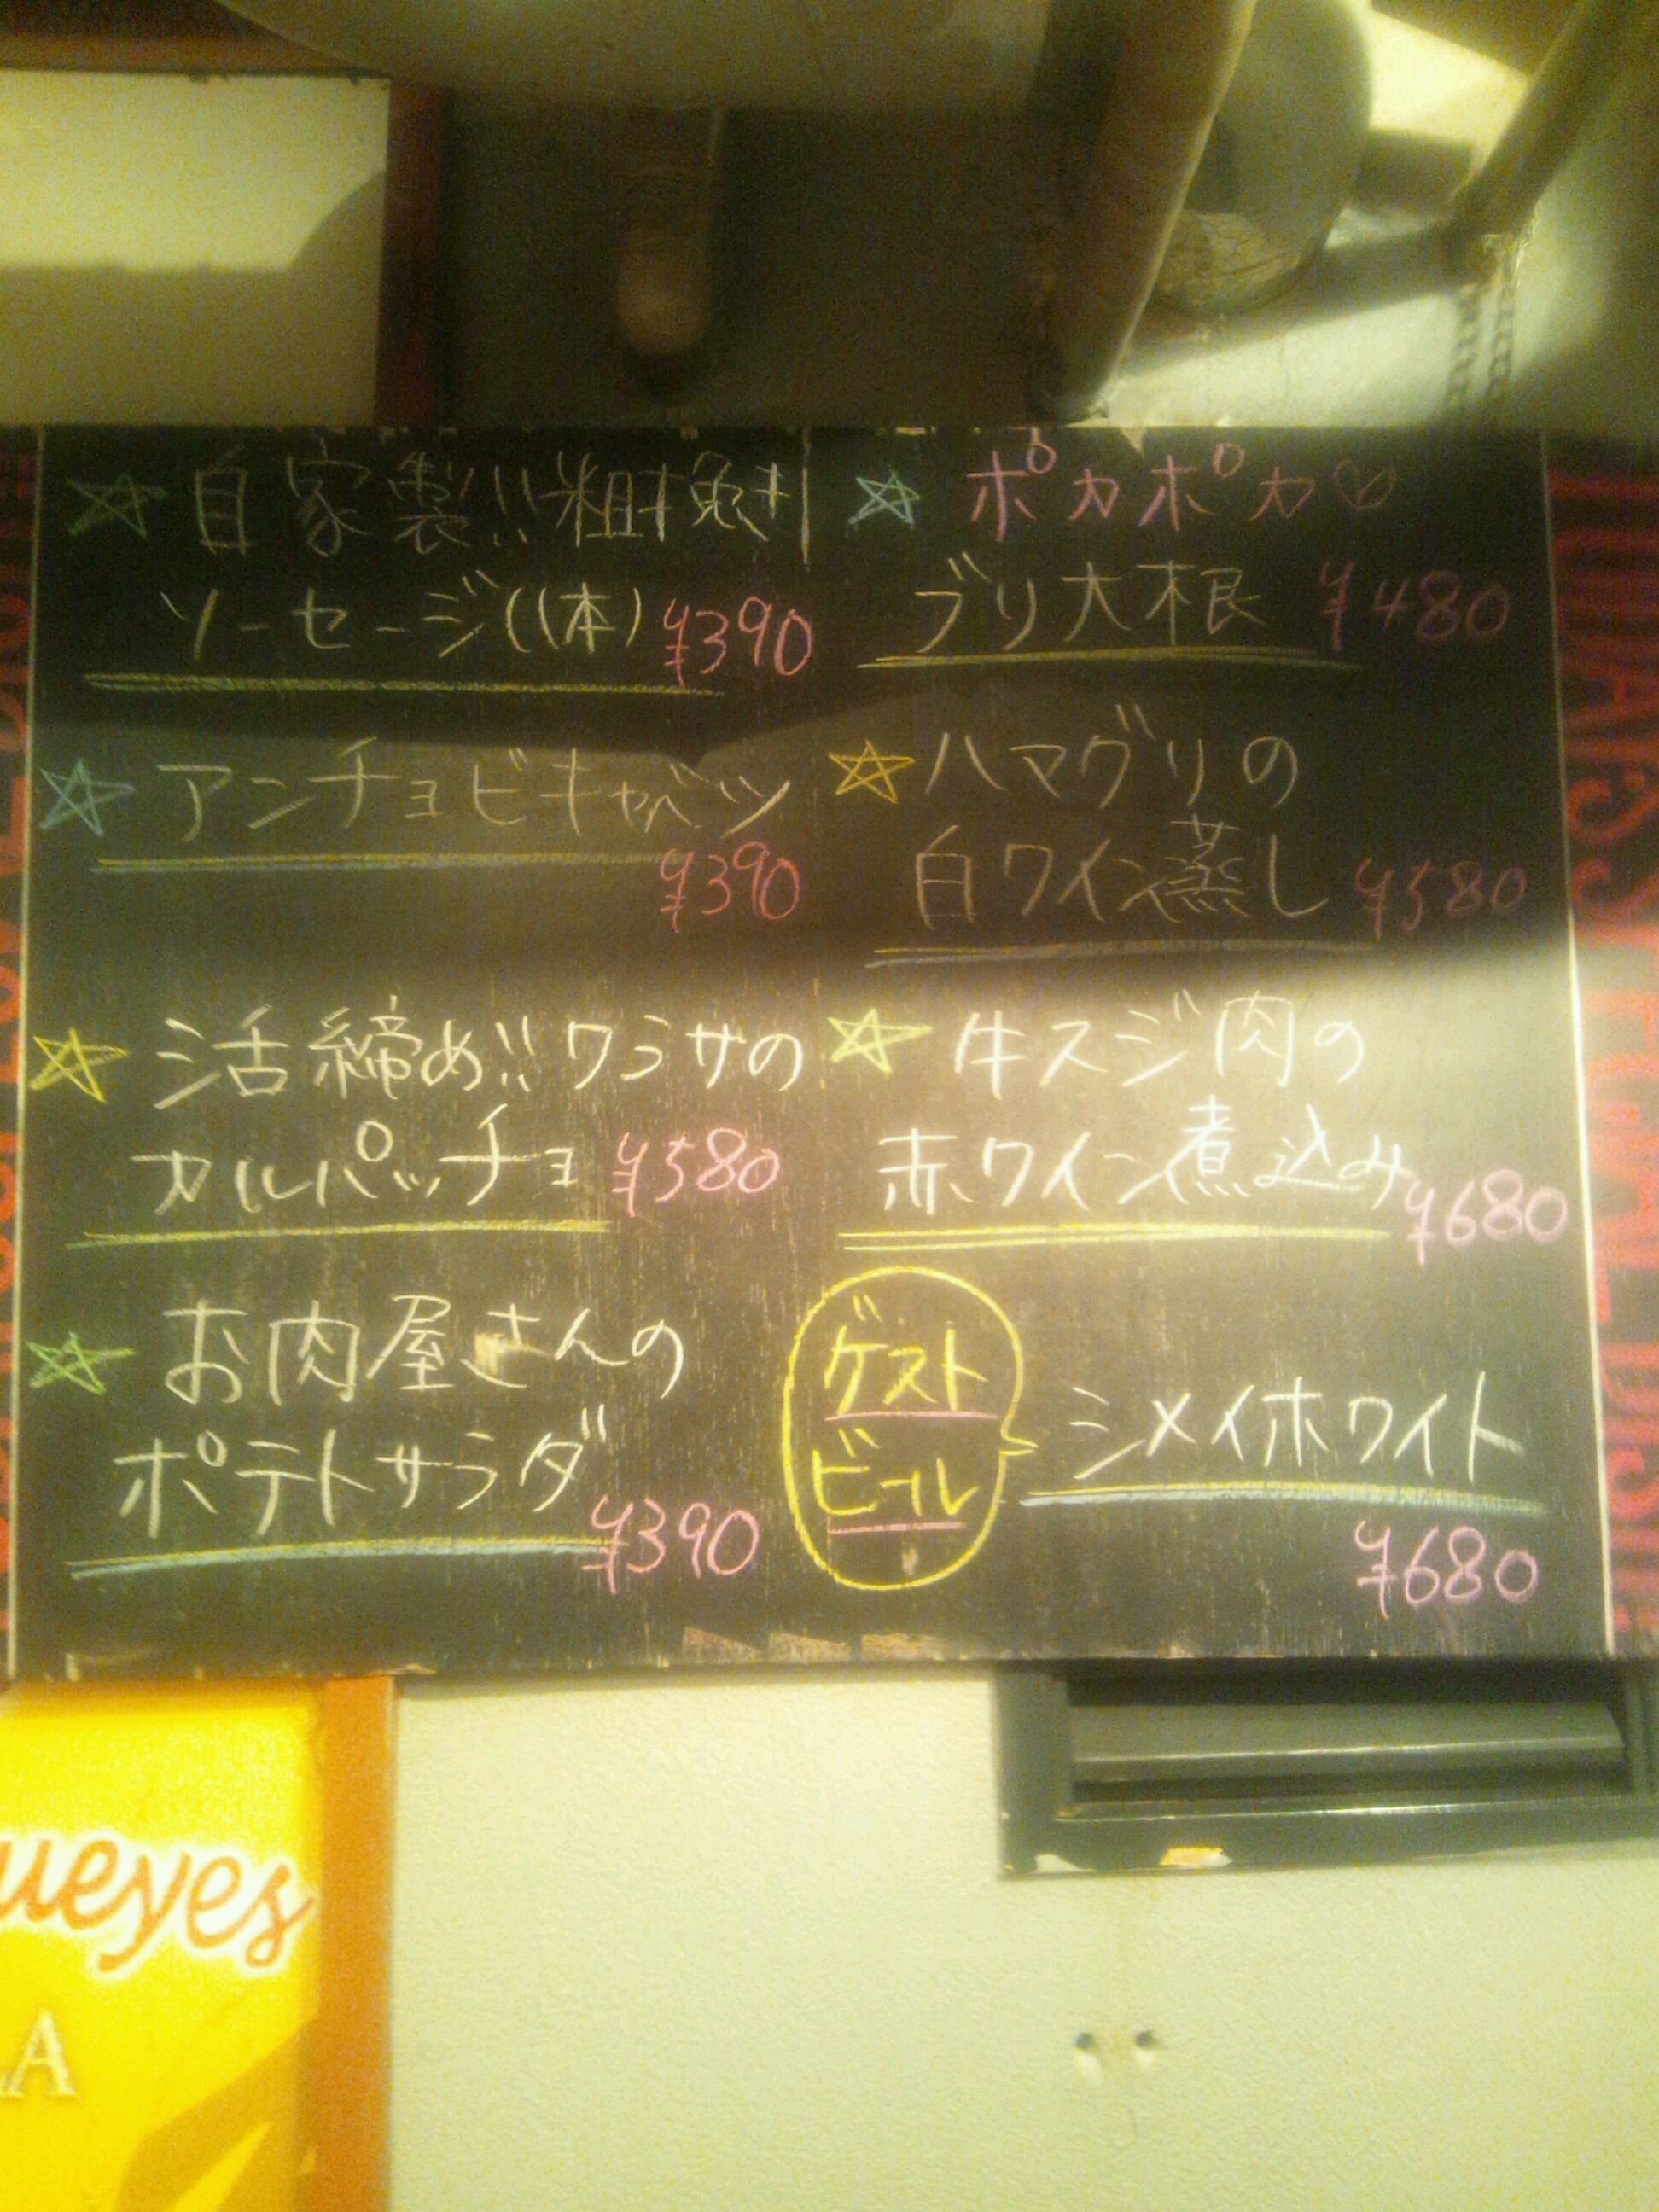 自家製!!粗挽き
ソーセージ(1本) ¥390
アンチョビキャベツ
¥390
活締め!!ワラサの
カルパッチョ ¥580
お肉屋さんの
ポテトサラダ
¥390
ポカポカ♡
ブリ大根 ¥480
ハマグリの
白ワイン蒸し ¥580
牛スジ肉の
赤ワイン煮込み ¥680
ゲスト
ビール
シメイホワイト
¥680
ueyes
LA